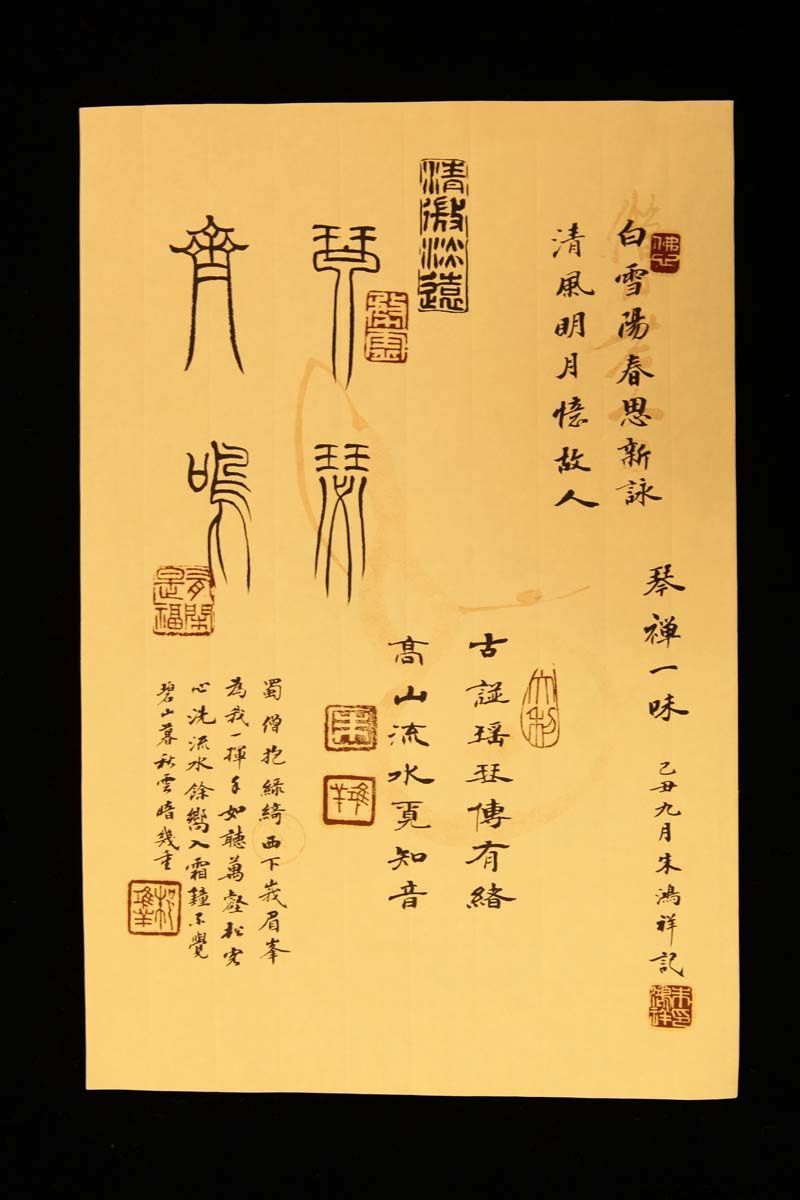 白雪陽春思新詠
清風明月憶故人
琴禅一味
己丑九月朱鴻祥記
清微淡遠
琴瑟
齊鳴
古謚瑶琹傳有緒
高山流水覓知音
大利
蜀僧抱綠綺西下峩眉峯
為我一揮手如聽萬壑松客
心洗流水餘嚮入霜鐘不覺
碧山暮秋雲暗幾重
有閑是福
朱鴻祥印